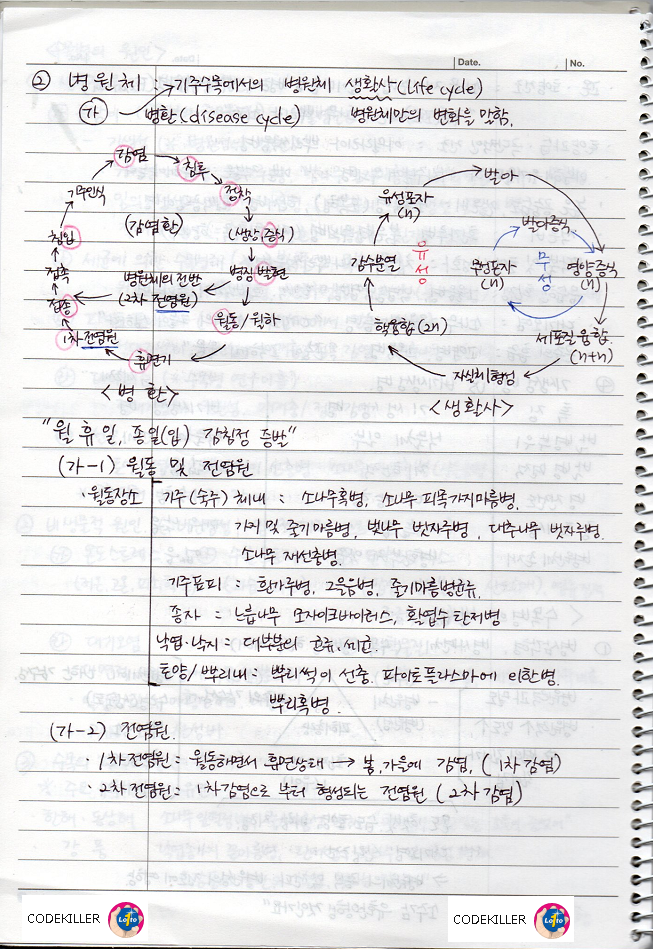 Date. No.
② 병원체 기주수목에서의 병원체 생활사(Life cycle)
㉮ 병환(disease cycle) 병원체만의 변화를 말함.
감염 침투 정착
기주인식
침입
접촉
접종
1차 전염원
휴면기
(감염환)
(생장, 증식)
병징발현
병원체의 전반
(2차 전염원)
월동/월하
<병환>
발아
유성포자
(n)
감수분열
유성
핵융합(2n)
발아증식
무성포자
(n)
무성
영양증식
(n)
세포질융합
(n+n)
자실체형성
<생활사>
"월 휴 일, 종일(입) 감침정 증발"
(가-1) 월동 및 전염원
·월동장소 기주(숙주) 체내 : 소나무혹병, 소나무 피목가지마름병,
가지 및 줄기마름병, 벚나무 빗자루병, 대추나무 빗자루병.
소나무 재선충병.
기주표피 : 흰가루병, 그을음병, 줄기마름병균류.
종자 : 느릅나무 모자이크바이러스, 활엽수 탄저병
낙엽·낙지 : 대부분의 균류·세균
토양/뿌리내 : 뿌리썩이 선충. 파이토플라스마에 의한병.
뿌리혹병.
(가-2) 전염원
· 1차전염원 : 월동하면서 휴면상태 → 봄, 가을에 감염, (1차감염)
· 2차전염원 : 1차감염으로 부터 형성되는 전염원 (2차 감염)
CODEKILLER Lotto 1 CODEKILLER Lotto 1